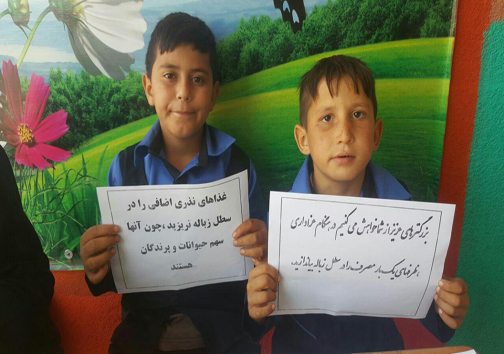 غذاهای نذری اضافی را در
سطل زباله نریزید ،چون آنها
سهم حیوانات و پرندگان
هستند
بزرگترهای عزیز از شما خواهش می کنیم در هنگام عزاداری
ظرفهای یک بار مصرف را در سطل زباله بیاندازید.